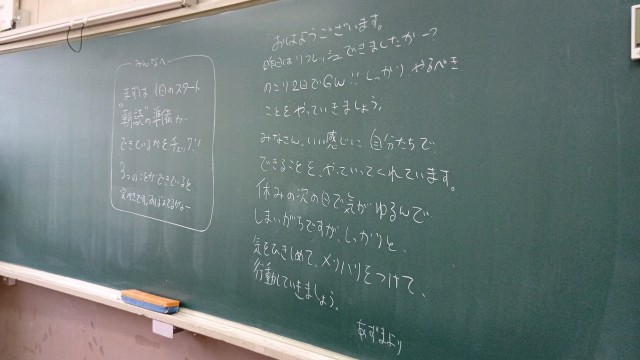 みんなへ
まずは 1日のスタート
"朝読"の準備が
できているかをチェック!!
3つのことができていると
おはようございます。
昨日はリフレッシュできましたか→?
のこり2日でGW!! しっかり やるべき
ことをやっていきましょう。
みなさん、いい感じに 自分たちで
できることを、やっていってくれています。
休みの次の日で気がゆるんで
しまいがちですが、しっかりと、
気をひきしめて、メリハリをつけて、
行動していきましょう。
あずまより